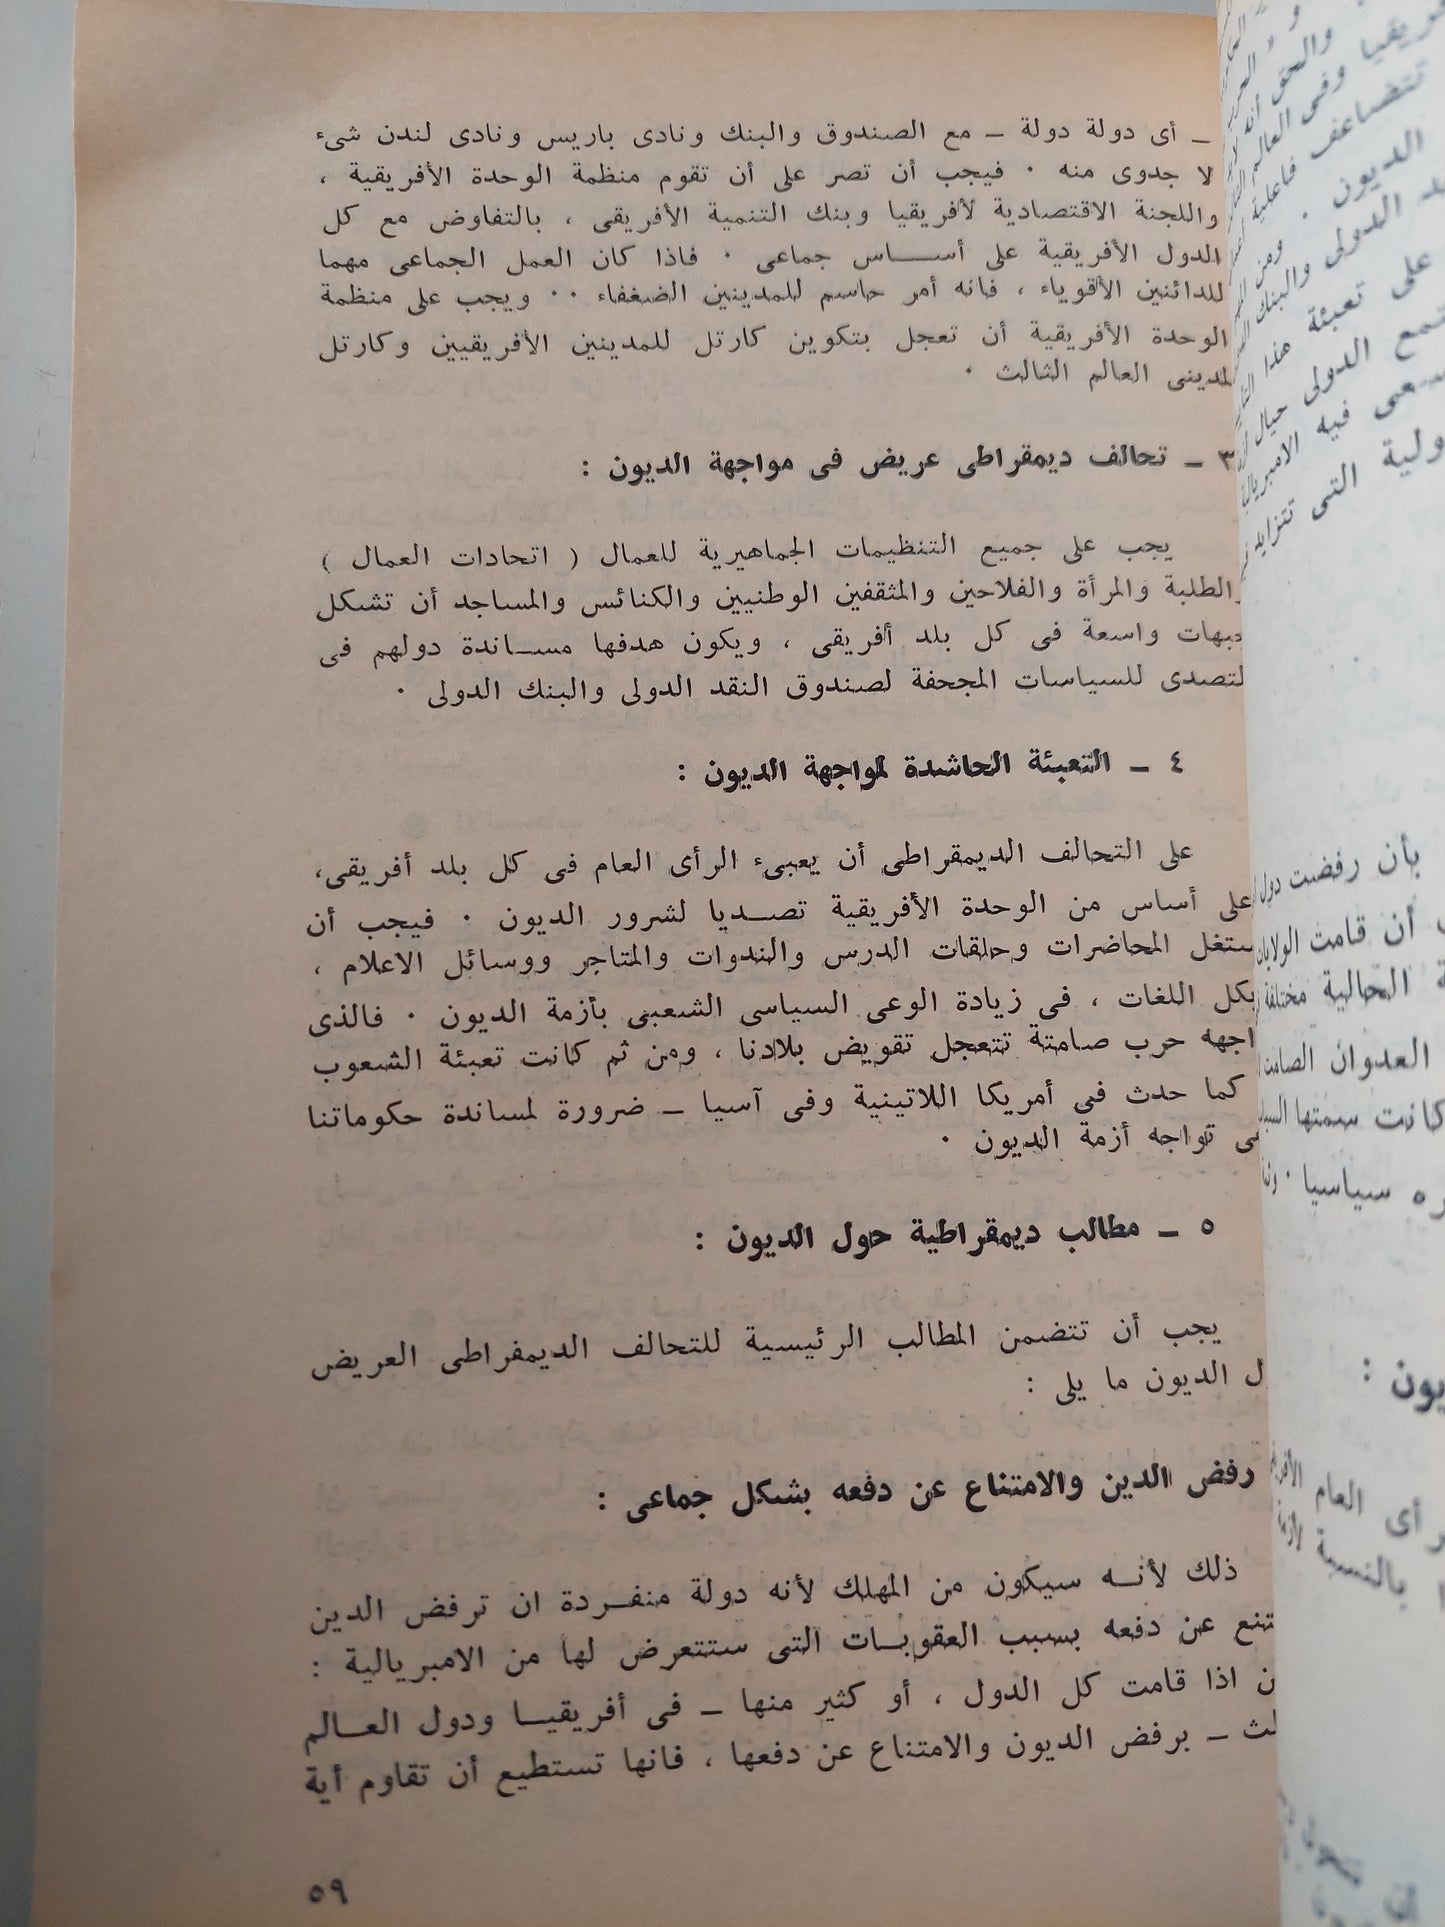 ـ أى دولة دولة ـ مع الصندوق والبنك ونادى باريس ونادى لندن شىء
لا جدوى منه ٠ فيجب أن تصر على أن تقوم منظمة الوحدة الأفريقية ،
واللجنة الاقتصادية لأفريقيا وبنك التنمية الأفريقى ، بالتفاوض مع كل
الدول الأفريقية على أســـاس جماعى ٠ فاذا كان العمل الجماعى مهما
للدائنين الأقوياء ، فانه أمر حاسم للمدينين الضغفاء ٠٠ ويجب على منظمة
الوحدة الأفريقية أن تعجل بتكوين كارتل للمدينين الأفريقيين وكارتل
لمدينى العالم الثالث ٠
٣ ـ تحالف ديمقراطى عريض فى مواجهة الديون :
يجب على جميع التنظيمات الجماهيرية للعمال ( اتحادات العمال )
والطلبة والمرأة والفلاحين والمثقفين الوطنيين والكنائس والمساجد أن تشكل
جبهات واسعة فى كل بلد أفريقى ، ويكون هدفها مســاندة دولهم فى
لتصدى للسياسات المجحفة لصندوق النقد الدولى والبنك الدولى ٠
٤ ـ التعبئة الحاشدة لمواجهة الديون :
على التحالف الديمقراطى أن يعبىء الرأى العام فى كل بلد أفريقى،
على أساس من الوحدة الأفريقية تصــديا لشرور الديون ٠ فيجب أن
ستغل المحاضرات وحلقات الدرس والندوات والمتاجر ووسائل الاعلام ،
بكل اللغات ، فى زيادة الوعى السياسى الشعبى بأزمة الديون ٠ فالذى
اجهه حرب صامتة تتعجل تقويض بلادنا ، ومن ثم كانت تعبئة الشعوب
كما حدث فى أمريكا اللاتينية وفى آسيا ـ ضرورة لمساندة حكوماتنا
تواجه أزمة الديون ٠
٥ ـ مطالب ديمقراطية حول الديون :
يجب أن تتضمن المطالب الرئيسية للتحالف الديمفراطى العريض
ل الديون ما يلى :
رفض الدين والامتناع عن دفعه بشكل جماعى :
ذلك لأنــه سيكون من المهلك لأنه دولة منفــردة ان ترفض الدين
تنع عن دفعه بسبب العقوبــات التى ستتعرض لها من الامبريالية :
ن اذا قامت كل الدول ، أو كثير منها ـ فى أفريقيــا ودول العــالم
لث ـ برفض الديون والامتناع عن دفعها ، فانها تستطيع أن تقاوم أية
٥٩
والحق أنه
تتضاعف فاعلية
الديون ٠
الدولى والبنك
على تعبئة هذا
الدولى حيال
فيه
التى تتزايد
بأن رفضت دول
أن قامت الولايات
الحالية مختلفة
العدوان الصامت
كانت سمتها
سياسيا ٠
يون :
أى العام
بالنسبة